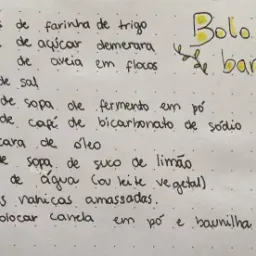 Bolo
ban
s de farinha de trigo
de açúcar demerara
de aveia em flocos
de sal
de sopa de fermento em pó
de café de bicarbonato de sódio
cara de óleo
e sopa de suco de limão
de água (ou leite vegetal)
s nanicas amassadas.
olocar canela em pó e baunilha